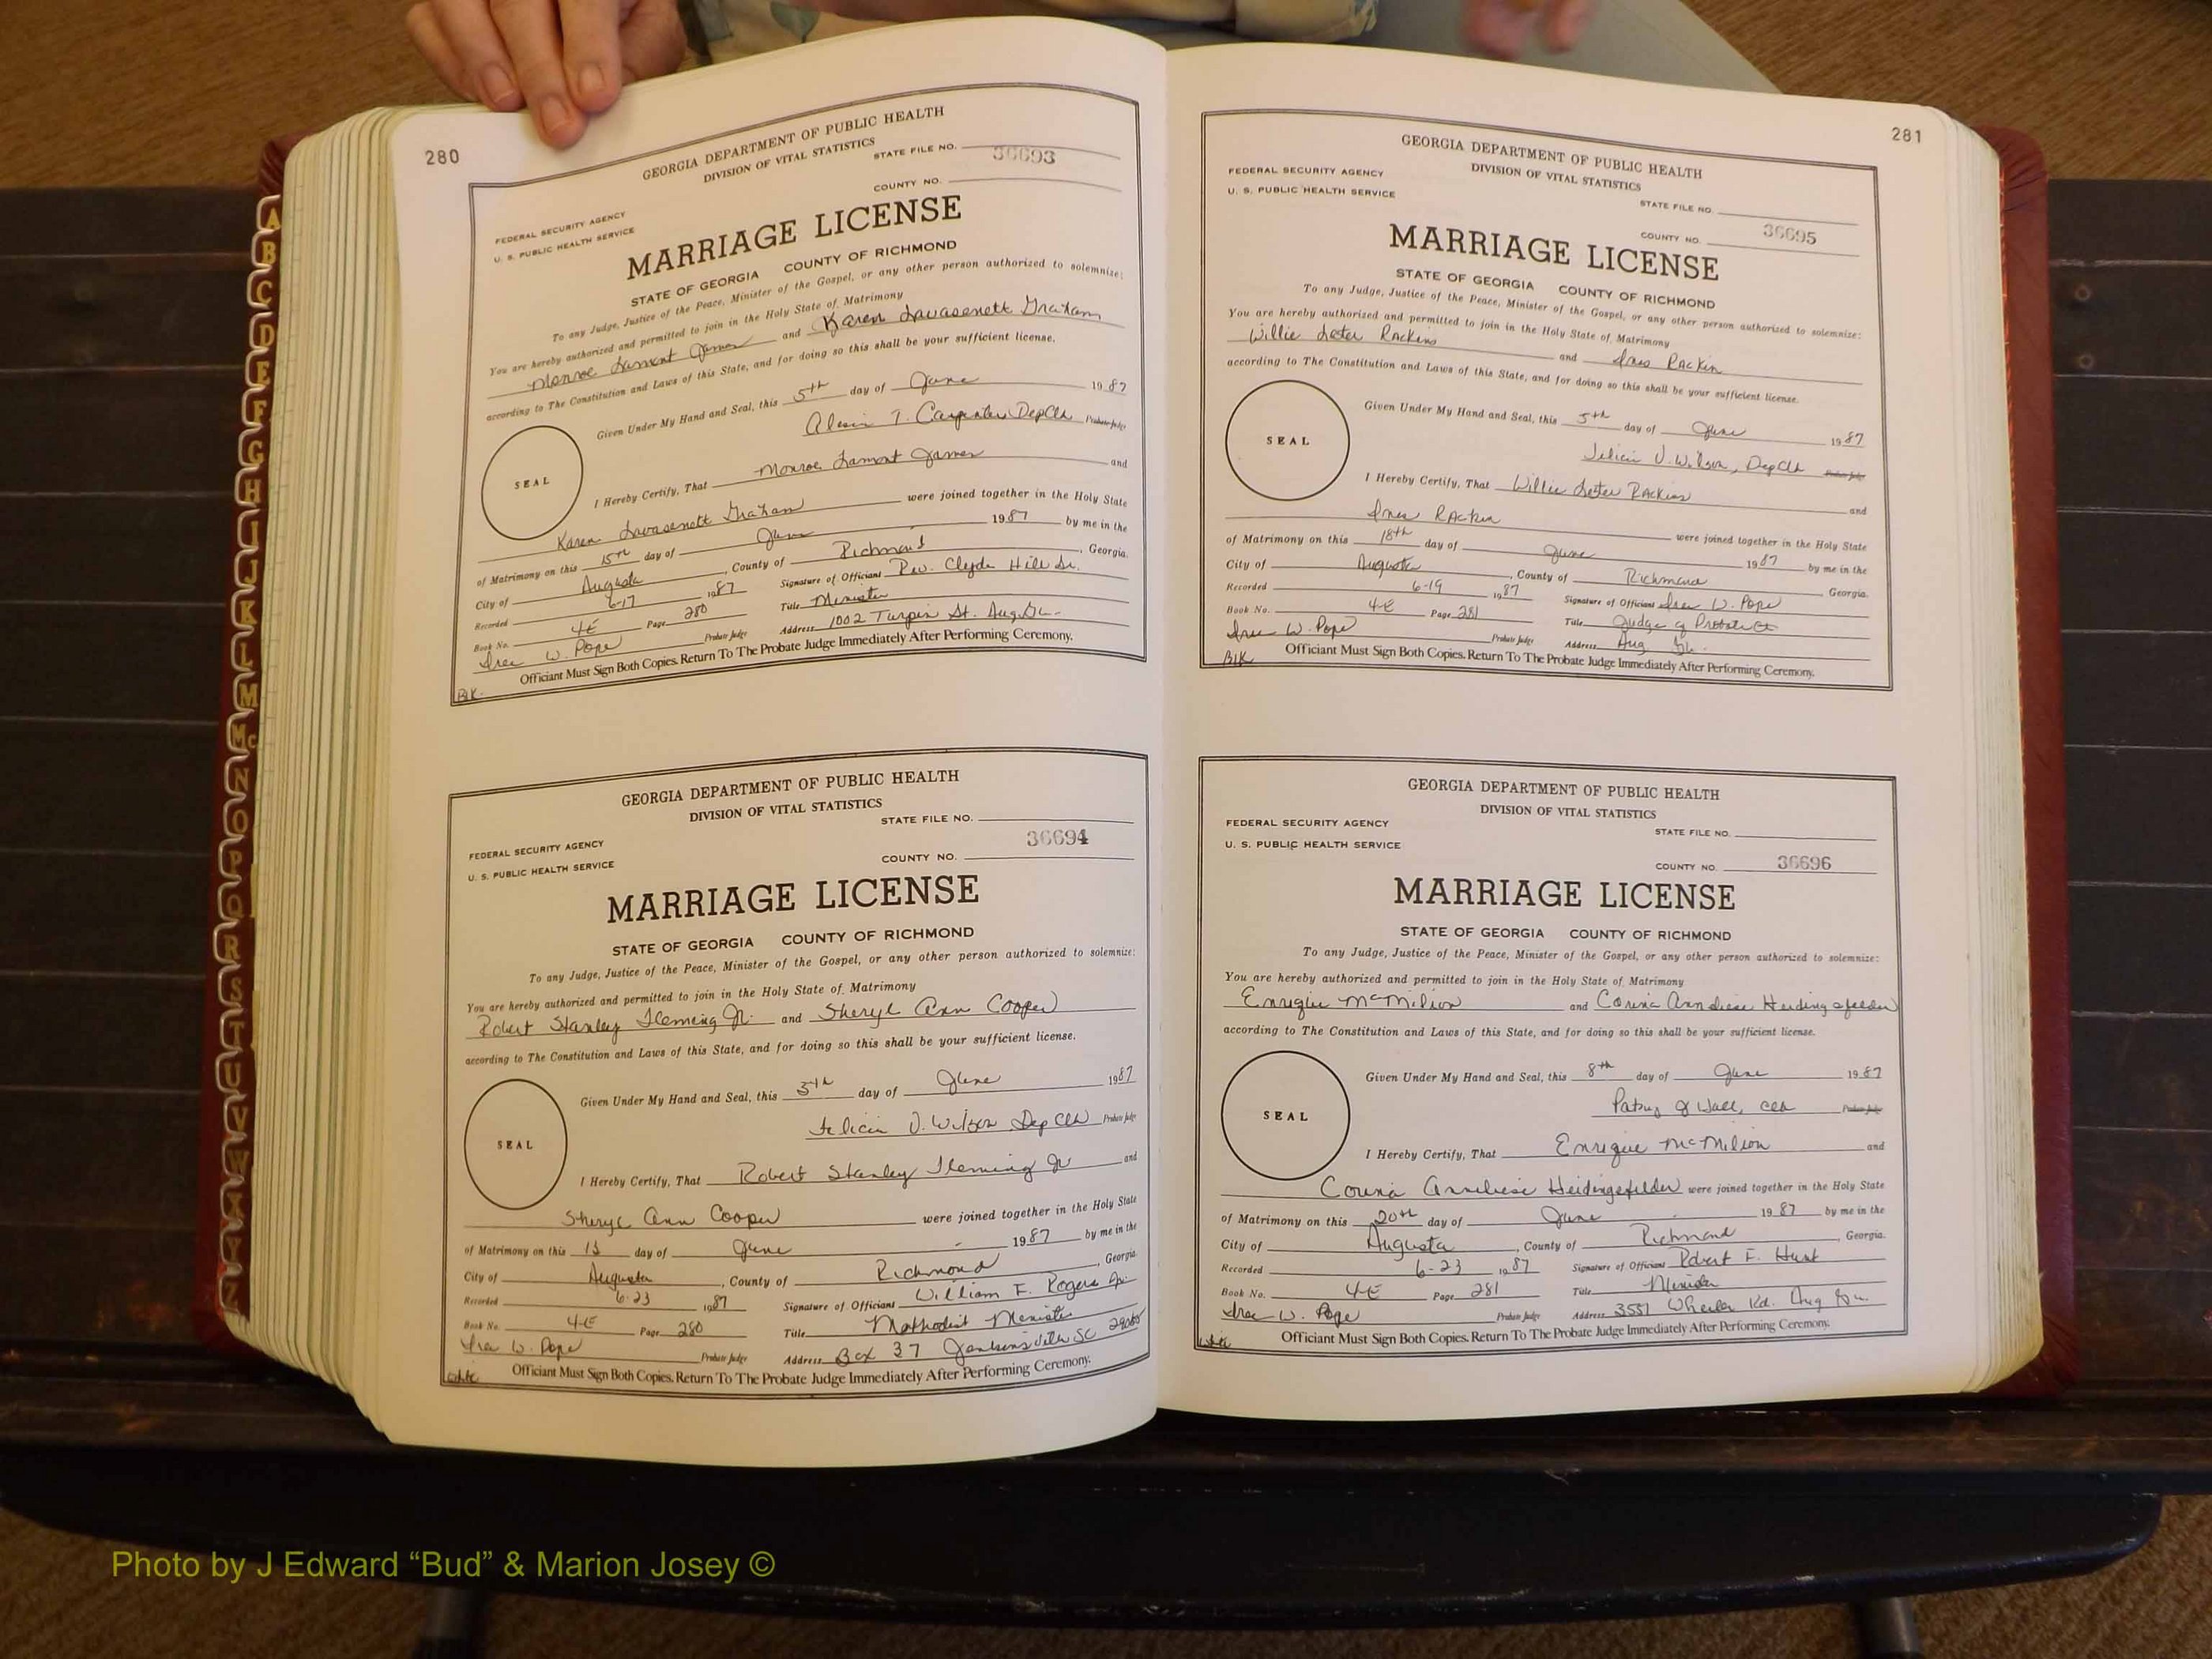 280
GEORGIA DEPARTMENT OF PUBLIC HEALTH
DIVISION OF VITAL STATISTICS
STATE FILE NO. 36693
COUNTY NO.
FEDERAL SECURITY AGENCY
U. S. PUBLIC HEALTH SERVICE
MARRIAGE LICENSE
STATE OF GEORGIA COUNTY OF RICHMOND
To any Judge, Justice of the Peace, Minister of the Gospel, or any other person authorized to solemnize:
You are hereby authorized and permitted to join in the Holy State of Matrimony
Monroe Lamont James and Karen Lavasenett Graham
according to The Constitution and Laws of this State, and for doing so this shall be your sufficient license.
Given Under My Hand and Seal, this 5th day of June 1987
T. Carpenter Dep Clk Probate Judge
SEAL
I Hereby Certify, That Monroe Lamont James and
Karen Lavasenett Graham were joined together in the Holy State
of Matrimony on this 15th day of June 1987 by me in the
City of Augusta, County of Richmond, Georgia.
Recorded 6-17 1987 Signature of Officiant Rev. Clyde Hill Sr.
Book No. 4E Page 280 Title Minister
W. Pope Probate Judge Address 1002 Turpin St. Aug. Ga.
Officiant Must Sign Both Copies. Return To The Probate Judge Immediately After Performing Ceremony.
Blk.
GEORGIA DEPARTMENT OF PUBLIC HEALTH
DIVISION OF VITAL STATISTICS
STATE FILE NO.
36694
FEDERAL SECURITY AGENCY
COUNTY NO.
U. S. PUBLIC HEALTH SERVICE
MARRIAGE LICENSE
STATE OF GEORGIA COUNTY OF RICHMOND
To any Judge, Justice of the Peace, Minister of the Gospel, or any other person authorized to solemnize:
You are hereby authorized and permitted to join in the Holy State of Matrimony
Robert Stanley Fleming Jr. and Sheryl Ann Cooper
according to The Constitution and Laws of this State, and for doing so this shall be your sufficient license.
Given Under My Hand and Seal, this 5th day of June 1987
Felicia D. Wilson Dep Clk Probate Judge
SEAL
I Hereby Certify, That Robert Stanley Fleming Jr and
Sheryl Ann Cooper were joined together in the Holy State
of Matrimony on this 13 day of June 1987 by me in the
City of Augusta, County of Richmond, Georgia.
Recorded 6-23 1987 Signature of Officiant William F. Rogers Jr.
Book No. 4-E Page 280 Title Methodist Minister
W. Pope Probate Judge Address Box 37 Jenkinsville SC 29065
White Officiant Must Sign Both Copies. Return To The Probate Judge Immediately After Performing Ceremony.
281
GEORGIA DEPARTMENT OF PUBLIC HEALTH
DIVISION OF VITAL STATISTICS
FEDERAL SECURITY AGENCY
U. S. PUBLIC HEALTH SERVICE
STATE FILE NO.
COUNTY NO. 36695
MARRIAGE LICENSE
STATE OF GEORGIA COUNTY OF RICHMOND
To any Judge, Justice of the Peace, Minister of the Gospel, or any other person authorized to solemnize:
You are hereby authorized and permitted to join in the Holy State of Matrimony
Willie Rackins and Rackin
according to The Constitution and Laws of this State, and for doing so this shall be your sufficient license.
Given Under My Hand and Seal, this 5th day of June 1987
Felicia D. Wilson, Dep Clk Probate Judge
SEAL
I Hereby Certify, That Willie Rackins and
Rackin were joined together in the Holy State
of Matrimony on this 18th day of June 1987 by me in the
City of Augusta, County of Richmond Georgia.
Recorded 6-19 1987 Signature of Officiant W. Pope
Book No. 4-E Page 281 Title Judge of Probate Ct
W. Pope Probate Judge Address Aug Ga.
Blk Officiant Must Sign Both Copies. Return To The Probate Judge Immediately After Performing Ceremony.
GEORGIA DEPARTMENT OF PUBLIC HEALTH
DIVISION OF VITAL STATISTICS
FEDERAL SECURITY AGENCY
STATE FILE NO.
U. S. PUBLIC HEALTH SERVICE
COUNTY NO. 36696
MARRIAGE LICENSE
STATE OF GEORGIA COUNTY OF RICHMOND
To any Judge, Justice of the Peace, Minister of the Gospel, or any other person authorized to solemnize:
You are hereby authorized and permitted to join in the Holy State of Matrimony
Enrique McMilion and Corina Anneliese Heidingsfelder
according to The Constitution and Laws of this State, and for doing so this shall be your sufficient license.
Given Under My Hand and Seal, this 8th day of June 1987
Patsy J Hall, Clk Probate Judge
SEAL
I Hereby Certify, That Enrique McMilion and
Corina Anneliese Heidingsfelder were joined together in the Holy State
of Matrimony on this 20th day of June 1987 by me in the
City of Augusta, County of Richmond, Georgia.
Recorded 6-23 1987 Signature of Officiant Robert F. Hunt
Book No. 4-E Page 281 Title Minister
W. Pope Probate Judge Address 3551 Wheeler Rd. Aug Ga.
White Officiant Must Sign Both Copies. Return To The Probate Judge Immediately After Performing Ceremony.
A
B
C
D
E
F
G
H
I
J
K
L
M
Mc
N
O
P
Q
R
S
T
U
V
W
X
Y
Z
Photo by J Edward “Bud” & Marion Josey ©